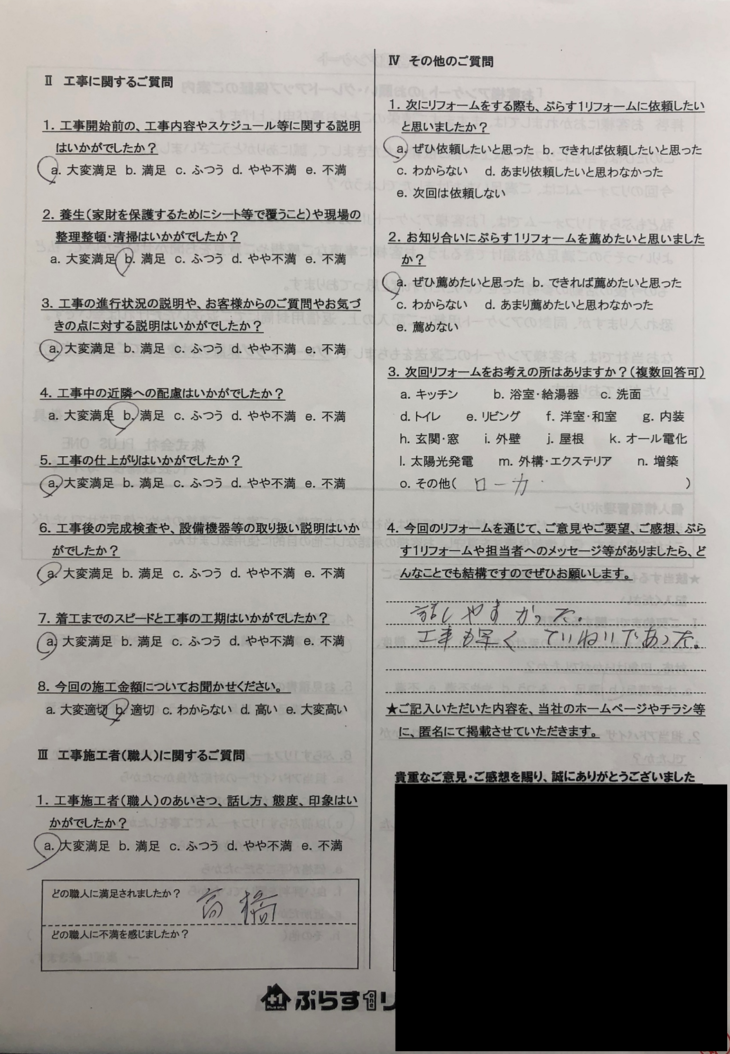 Ⅱ 工事に関するご質問
1. 工事開始前の、工事内容やスケジュール等に関する説明
はいかがでしたか？
a. 大変満足 b. 満足 c. ふつう d. やや不満 e. 不満
2. 養生(家財を保護するためにシート等で覆うこと)や現場の
整理整頓・清掃はいかがでしたか？
a. 大変満足 b. 満足 c. ふつう d. やや不満 e. 不満
3. 工事の進行状況の説明や、お客様からのご質問やお気づ
きの点に対する説明はいかがでしたか？
a. 大変満足 b. 満足 c. ふつう d. やや不満 e. 不満
4. 工事中の近隣への配慮はいかがでしたか？
a. 大変満足 b. 満足 c. ふつう d. やや不満 e. 不満
5. 工事の仕上がりはいかがでしたか？
a. 大変満足 b. 満足 c. ふつう d. やや不満 e. 不満
6. 工事後の完成検査や、設備機器等の取り扱い説明はいか
がでしたか？
a. 大変満足 b. 満足 c. ふつう d. やや不満 e. 不満
7. 着工までのスピードと工事の工期はいかがでしたか？
a. 大変満足 b. 満足 c. ふつう d. やや不満 e. 不満
8. 今回の施工金額についてお聞かせください。
a. 大変適切 b. 適切 c. わからない d. 高い e. 大変高い
Ⅲ 工事施工者(職人)に関するご質問
1. 工事施工者(職人)のあいさつ、話し方、態度、印象はい
かがでしたか？
a. 大変満足 b. 満足 c. ふつう d. やや不満 e. 不満
どの職人に満足されましたか？ 高橋
どの職人に不満を感じましたか？
Ⅳ その他のご質問
1. 次にリフォームをする際も、ぷらす1リフォームに依頼したい
と思いましたか？
a. ぜひ依頼したいと思った b. できれば依頼したいと思った
c. わからない d. あまり依頼したいと思わなかった
e. 次回は依頼しない
2. お知り合いにぷらす1リフォームを薦めたいと思いました
か？
a. ぜひ薦めたいと思った b. できれば薦めたいと思った
c. わからない d. あまり薦めたいと思わなかった
e. 薦めない
3. 次回リフォームをお考えの所はありますか？(複数回答可)
a. キッチン b. 浴室・給湯器 c. 洗面
d. トイレ e. リビング f. 洋室・和室 g. 内装
h. 玄関・窓 i. 外壁 j. 屋根 k. オール電化
l. 太陽光発電 m. 外構・エクステリア n. 増築
o. その他( ローカ )
4. 今回のリフォームを通じて、ご意見やご要望、ご感想、ぷら
す1リフォームや担当者へのメッセージ等がありましたら、ど
んなことでも結構ですのでぜひお願いします。
話しやすかった。
工事も早く ていねいであった。
★ご記入いただいた内容を、当社のホームページやチラシ等
に、匿名にて掲載させていただきます。
貴重なご意見・ご感想を賜り、誠にありがとうございました
+1 ぷらす1リ